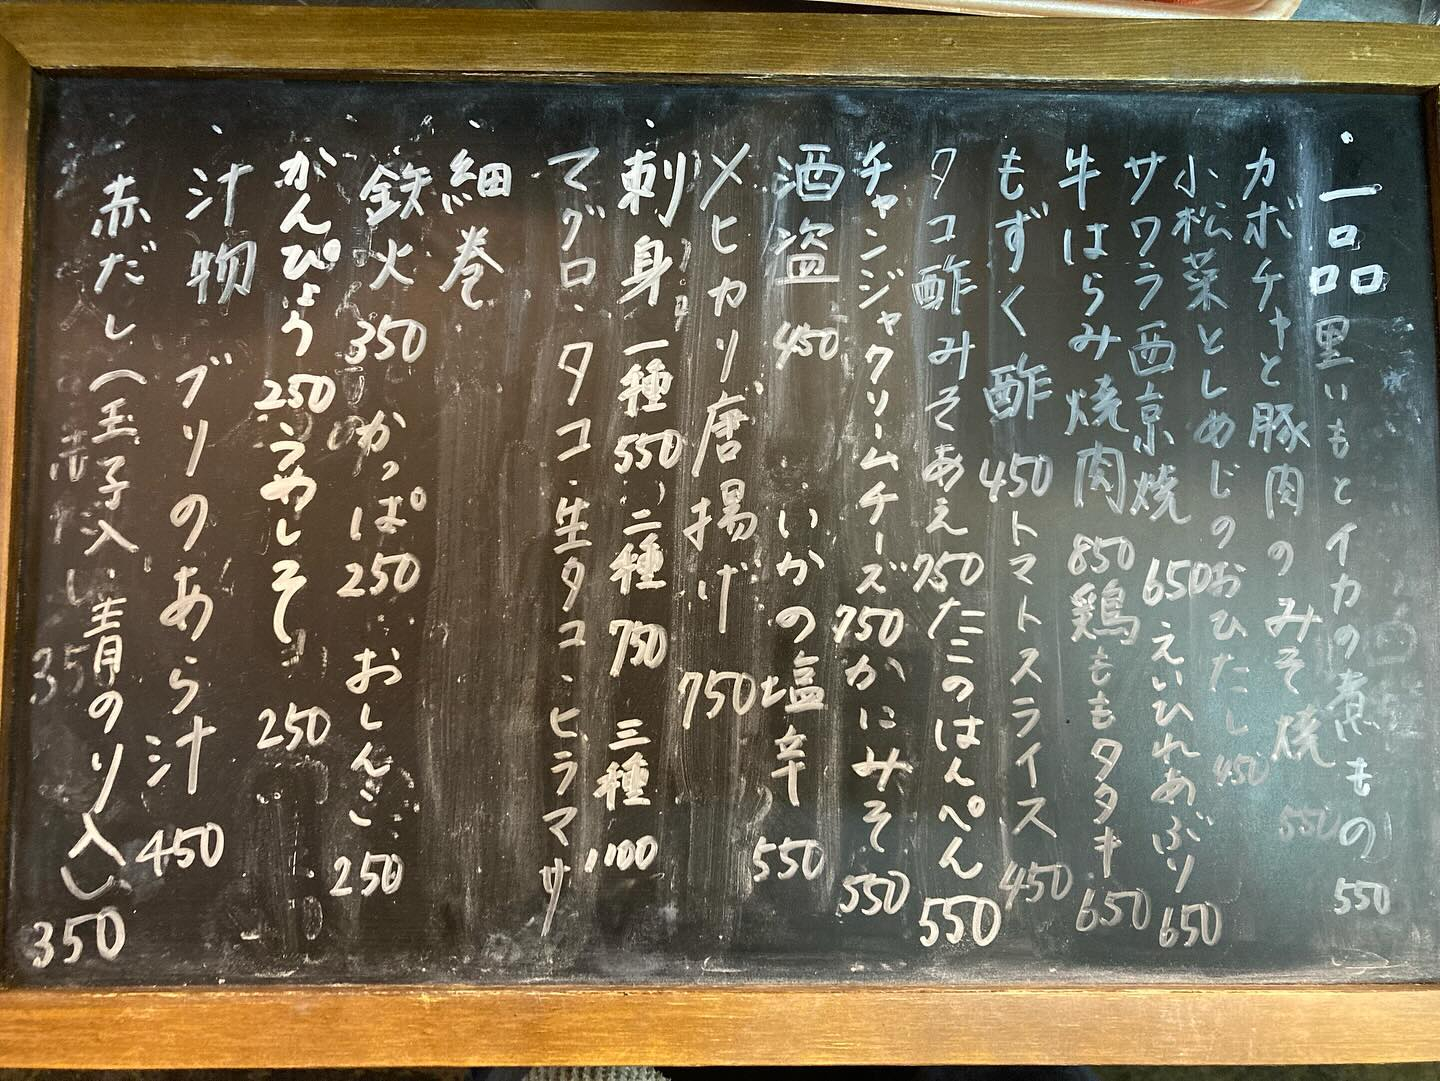 ・一品 里いもとイカの煮もの 550
カボチャと豚肉のみそ焼 550
小松菜としめじのおひたし 450
サワラ西京焼 650 えいひれあぶり 650
牛はらみ焼肉 850 鶏ももタタキ 650
もずく酢 450 トマトスライス 450
タコ酢みそあえ 750 たこのはんぺん 550
チャンジャクリームチーズ 750 かにみそ 550
酒盗 450 いかの塩辛 550
メヒカリ唐揚げ 750
・刺身 一種 550 二種 750 三種 1100
マグロ・タコ・生タコ・ヒラマサ
・細巻
鉄火 350 かっぱ 250 おしんこ 250
かんぴょう 250 うめしそ 250
・汁物 ブリのあら汁 450
赤だし(玉子入し、青のり入し) 350